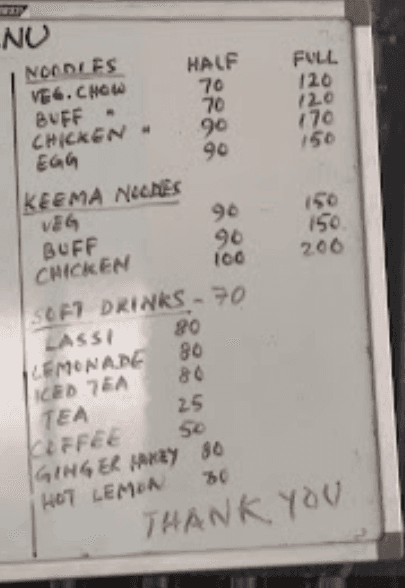 NU
NOODLES HALF FULL
VEG. CHOW 70 120
BUFF " 70 120
CHICKEN " 90 170
EGG 90 150
KEEMA NOODES
VEG 90 150
BUFF 90 150
CHICKEN 100 200
SOFT DRINKS - 70
LASSI 80
LEMONADE 80
ICED TEA 80
TEA 25
COFFEE 50
GINGER HONEY 80
HOT LEMON 80
THANK YOU